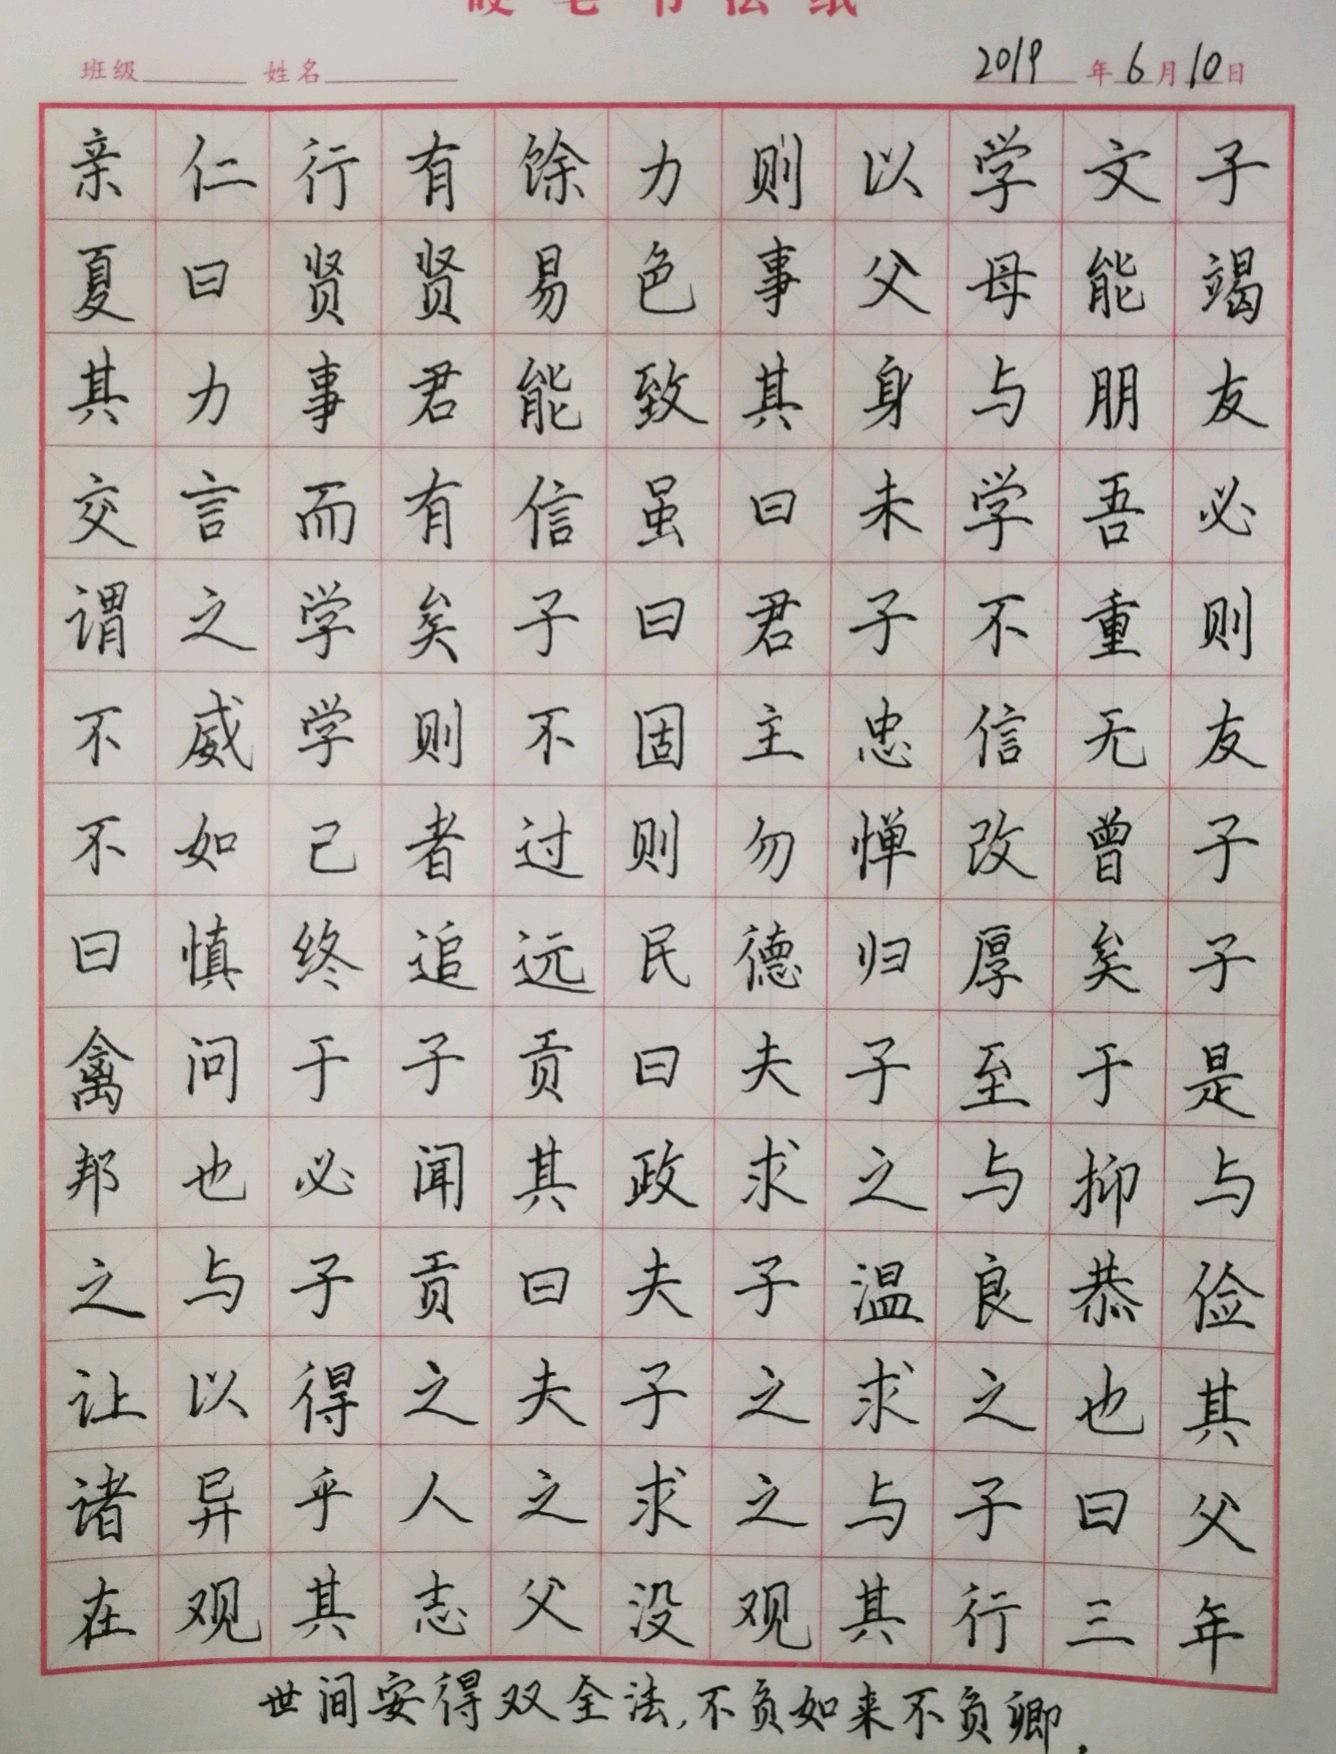 硬笔书法纸
班级 姓名 2019年6月10日
亲仁行有馀力则以学文子
夏曰贤贤易色事父母能竭
其力事君能致其身与朋友
交言而有信虽曰未学吾必
谓之学矣子曰君子不重则
不威学则不固主忠信无友
不如己者过则勿惮改曾子
曰慎终追远民德归厚矣子
禽问于子贡曰夫子至于是
邦也必闻其政求之与抑与
之与子贡曰夫子温良恭俭
让以得之夫子之求之也其
诸异乎人之求之与子曰父
在观其志父没观其行三年
世间安得双全法,不负如来不负卿.